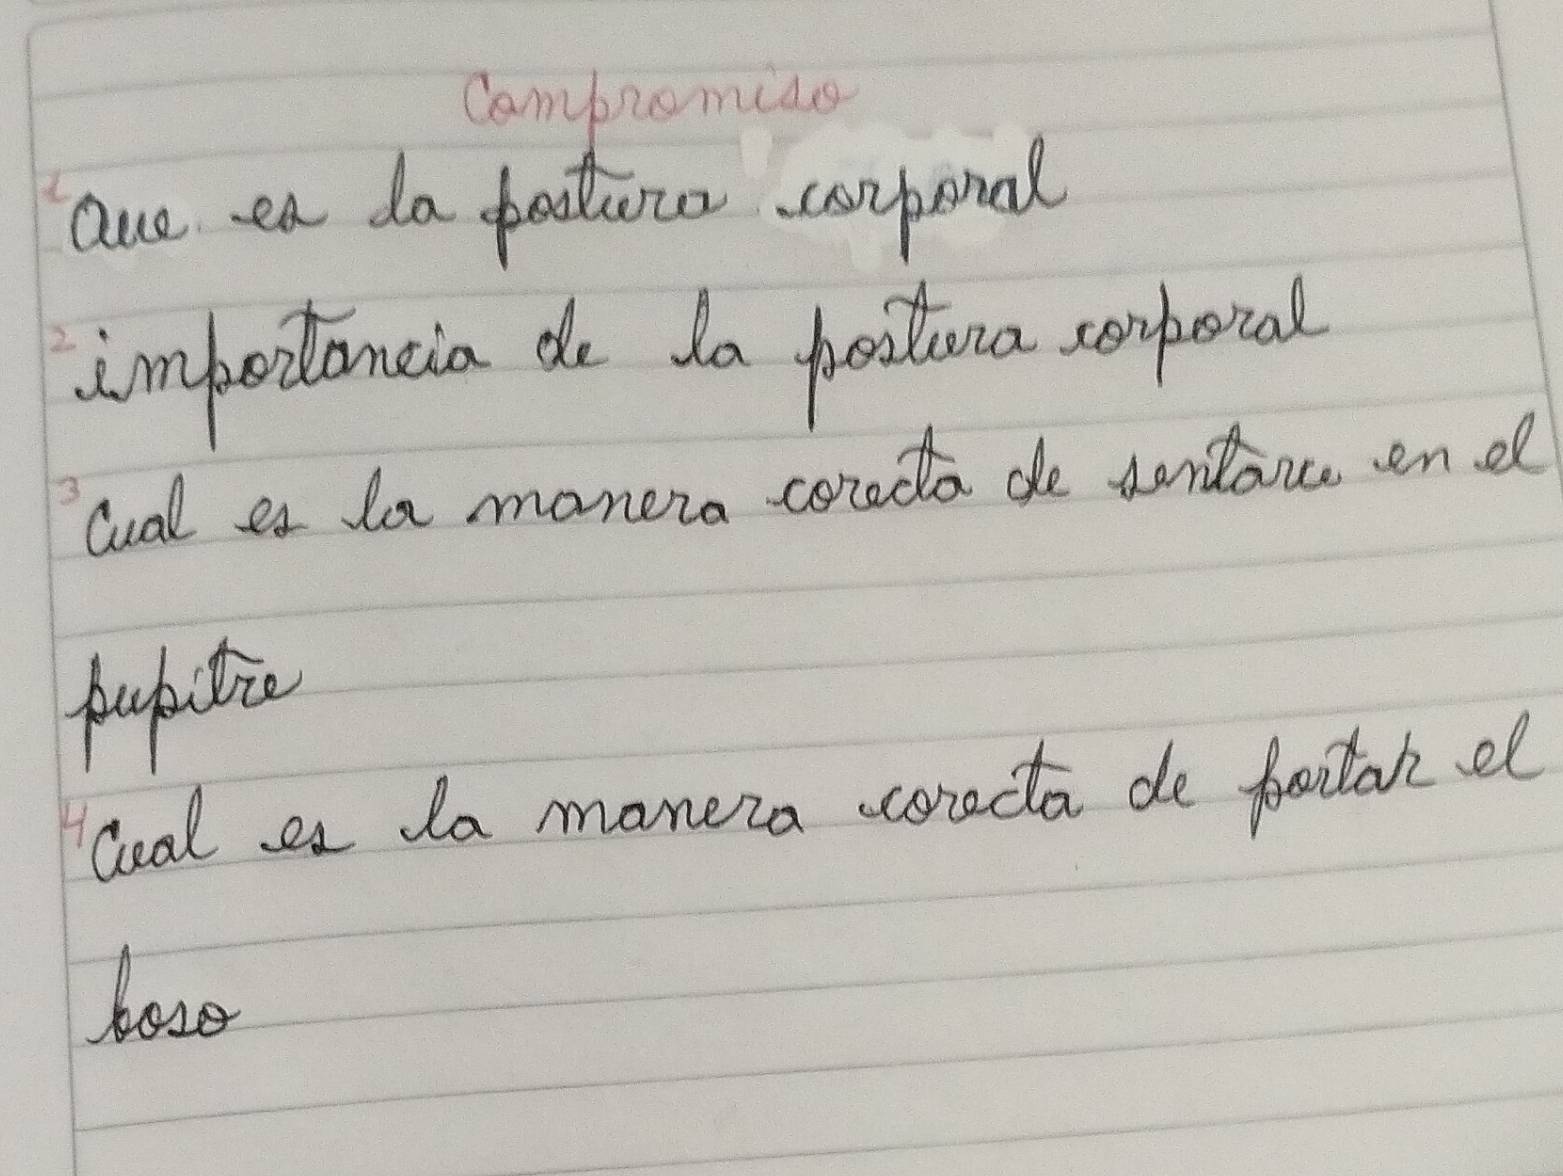 Compromiso
1 Que es la postura corporal
2 importancia de la postura corporal
3 Cual es la manera corecta de sentarce en el
pupitre
4 Cual es la manera corecta de portar el
boso